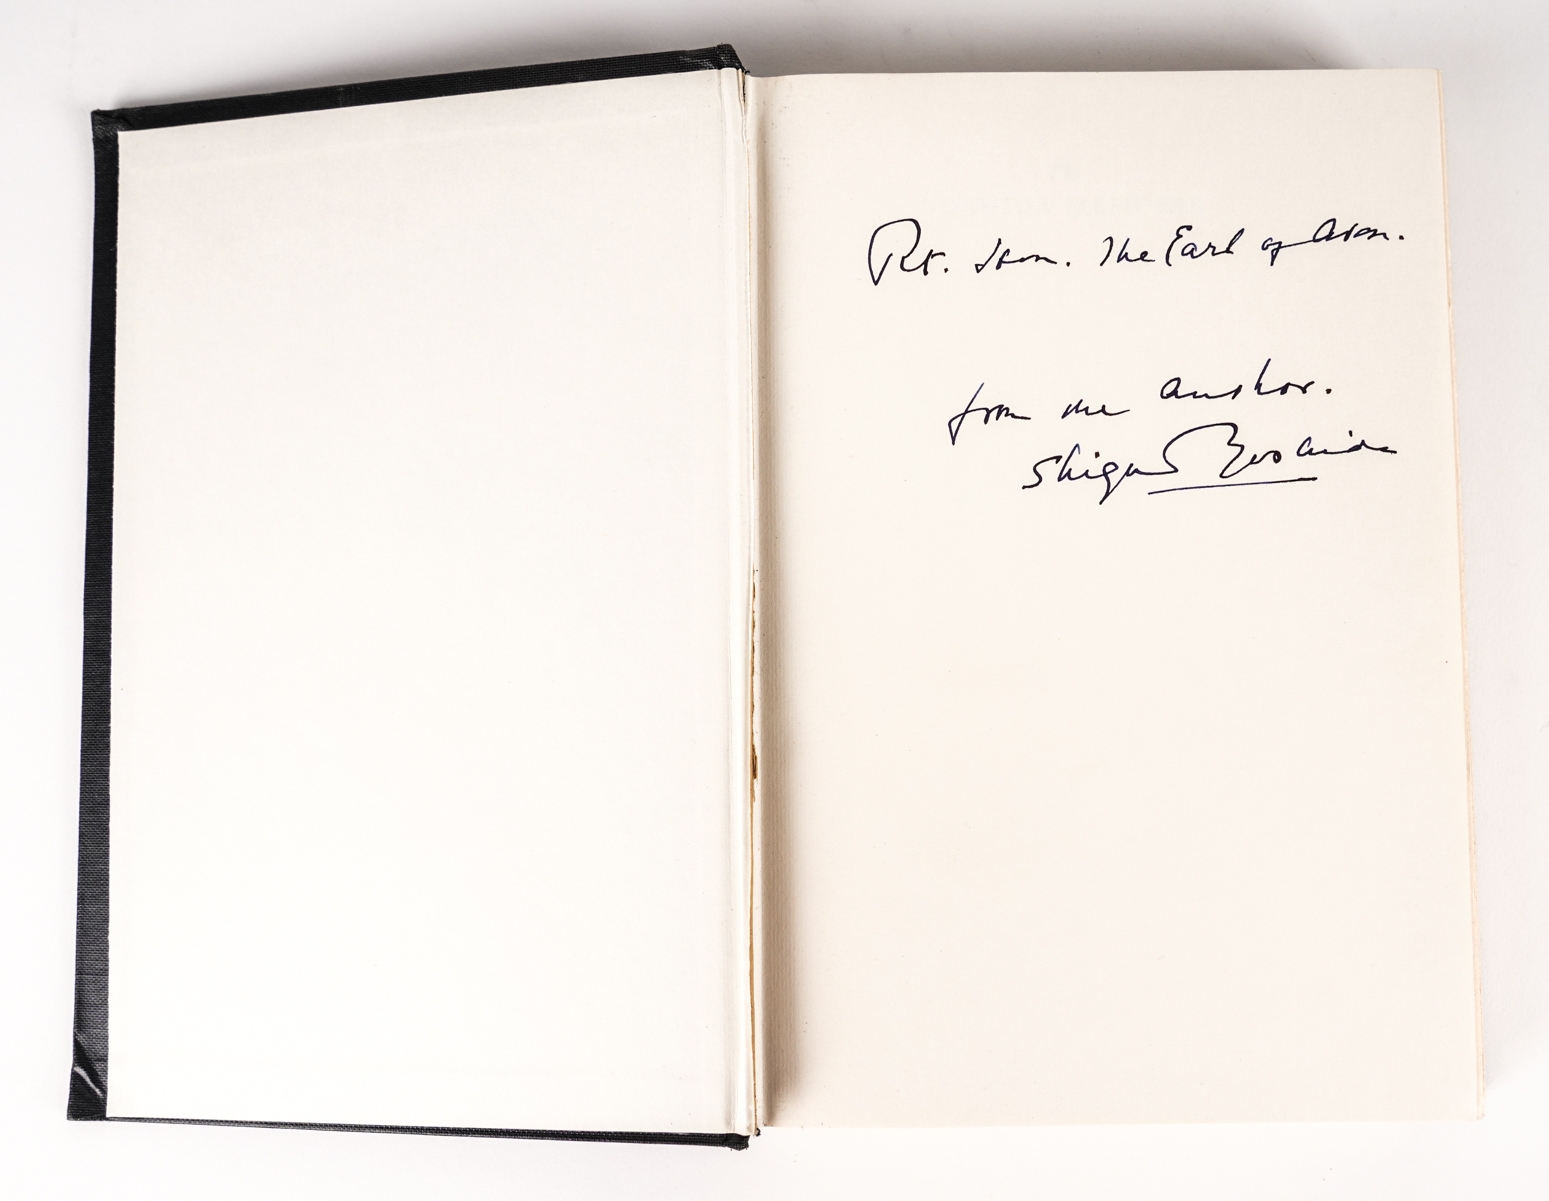 Rt. Hon. The Earl of Avon.
from the author.
Shigeru Yoshida